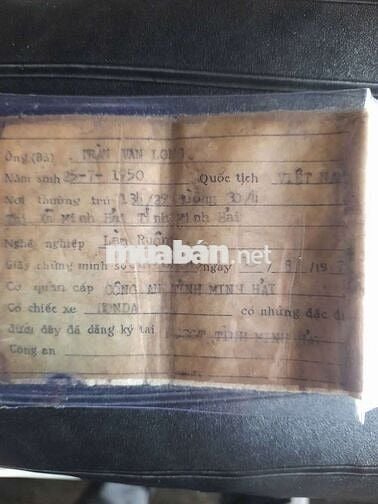 Ông (Bà) TRẦN VĂN LONG
Năm sinh 25-7-1950 Quốc tịch VIỆT NAM
Nơi thường trú 30/4
Thị Xã Minh Hải Tỉnh Minh Hải
Nghề nghiệp Làm Ruộng
Giấy chứng minh số ngày /8/19
Cơ quan cấp CÔNG AN TỈNH MINH HẢI
Có chiếc xe HONDA có những đặc đi
dưới đây đã đăng ký tại TỈNH MINH HẢI
Công an
muaban.net